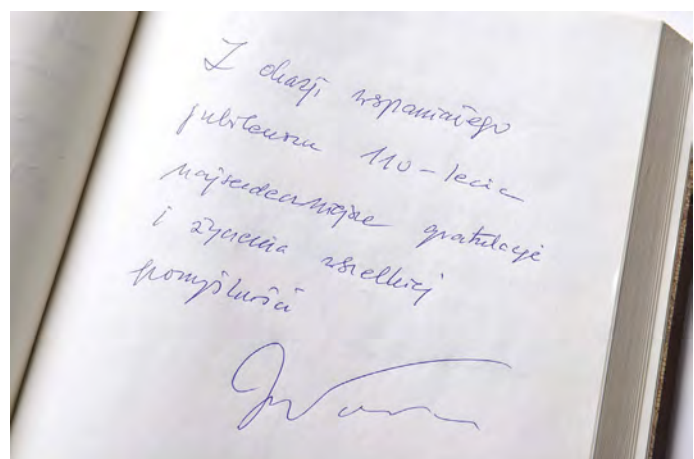 Z okazji wspaniałego
jubileuszu 110-lecia
najserdeczniejsze gratulacje
i życzenia wszelkiej
pomyślności